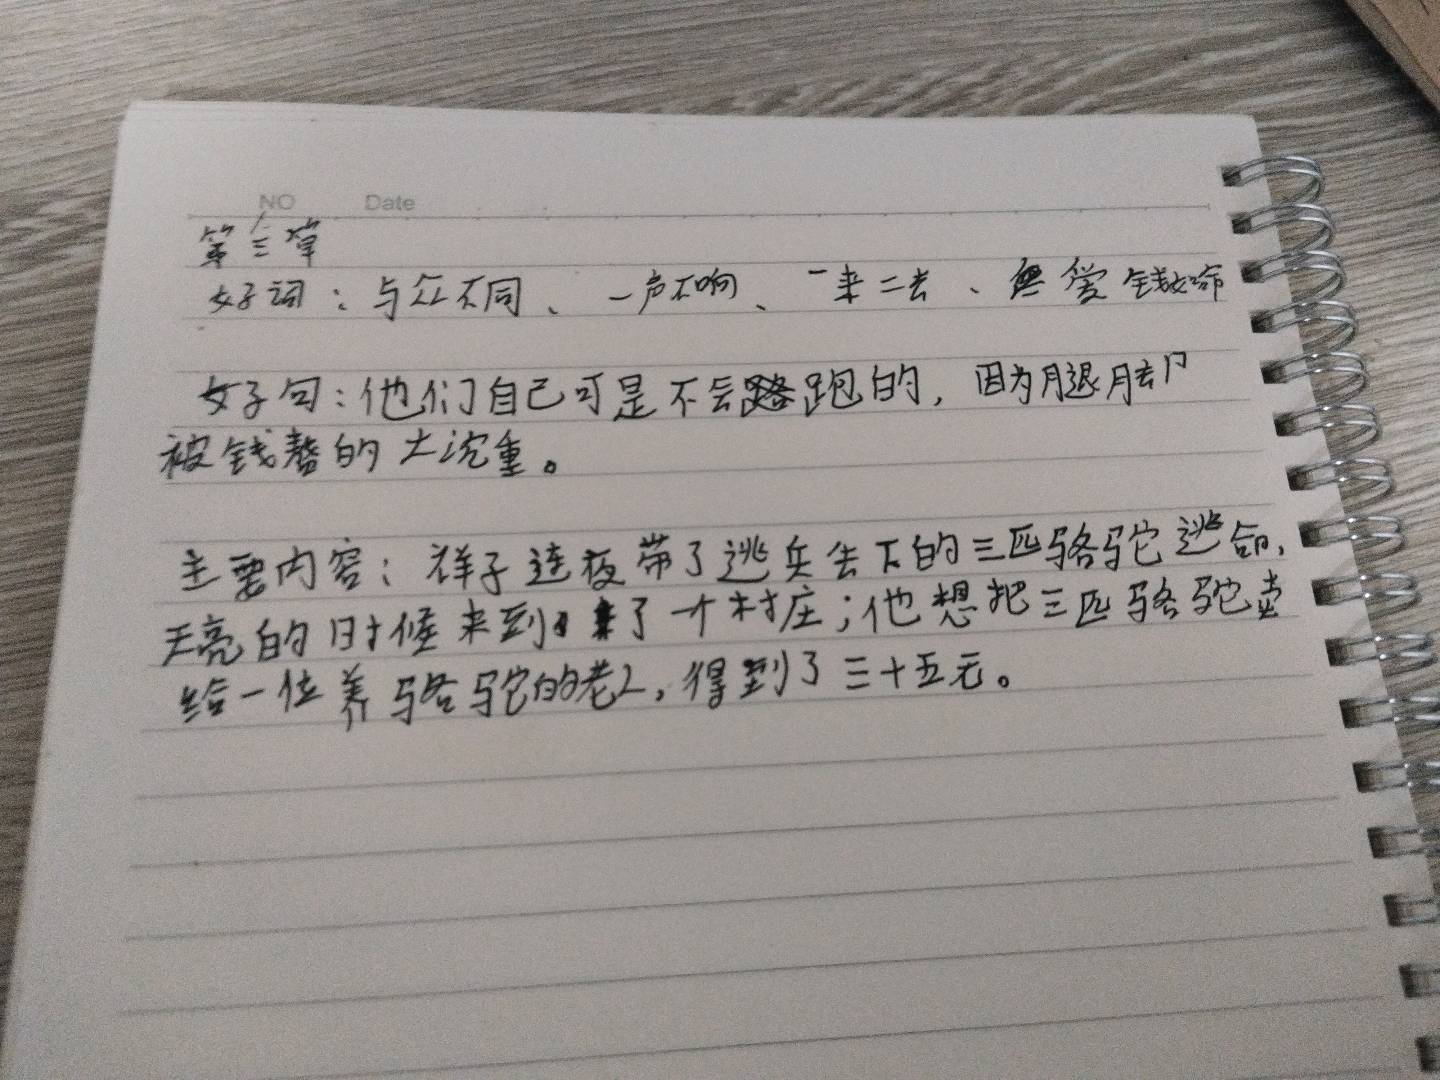 NO Date
第三章
好词：与众不同、一声不响、一来二去、爱钱如命
好句：他们自己可是不会跑的，因为腿脚
被钱赘的太沉重。
主要内容：祥子连夜带了逃兵丢下的三匹骆驼逃命，
天亮的时候来到了一个村庄；他想把三匹骆驼卖
给一位养骆驼的老人，得到了三十五元。